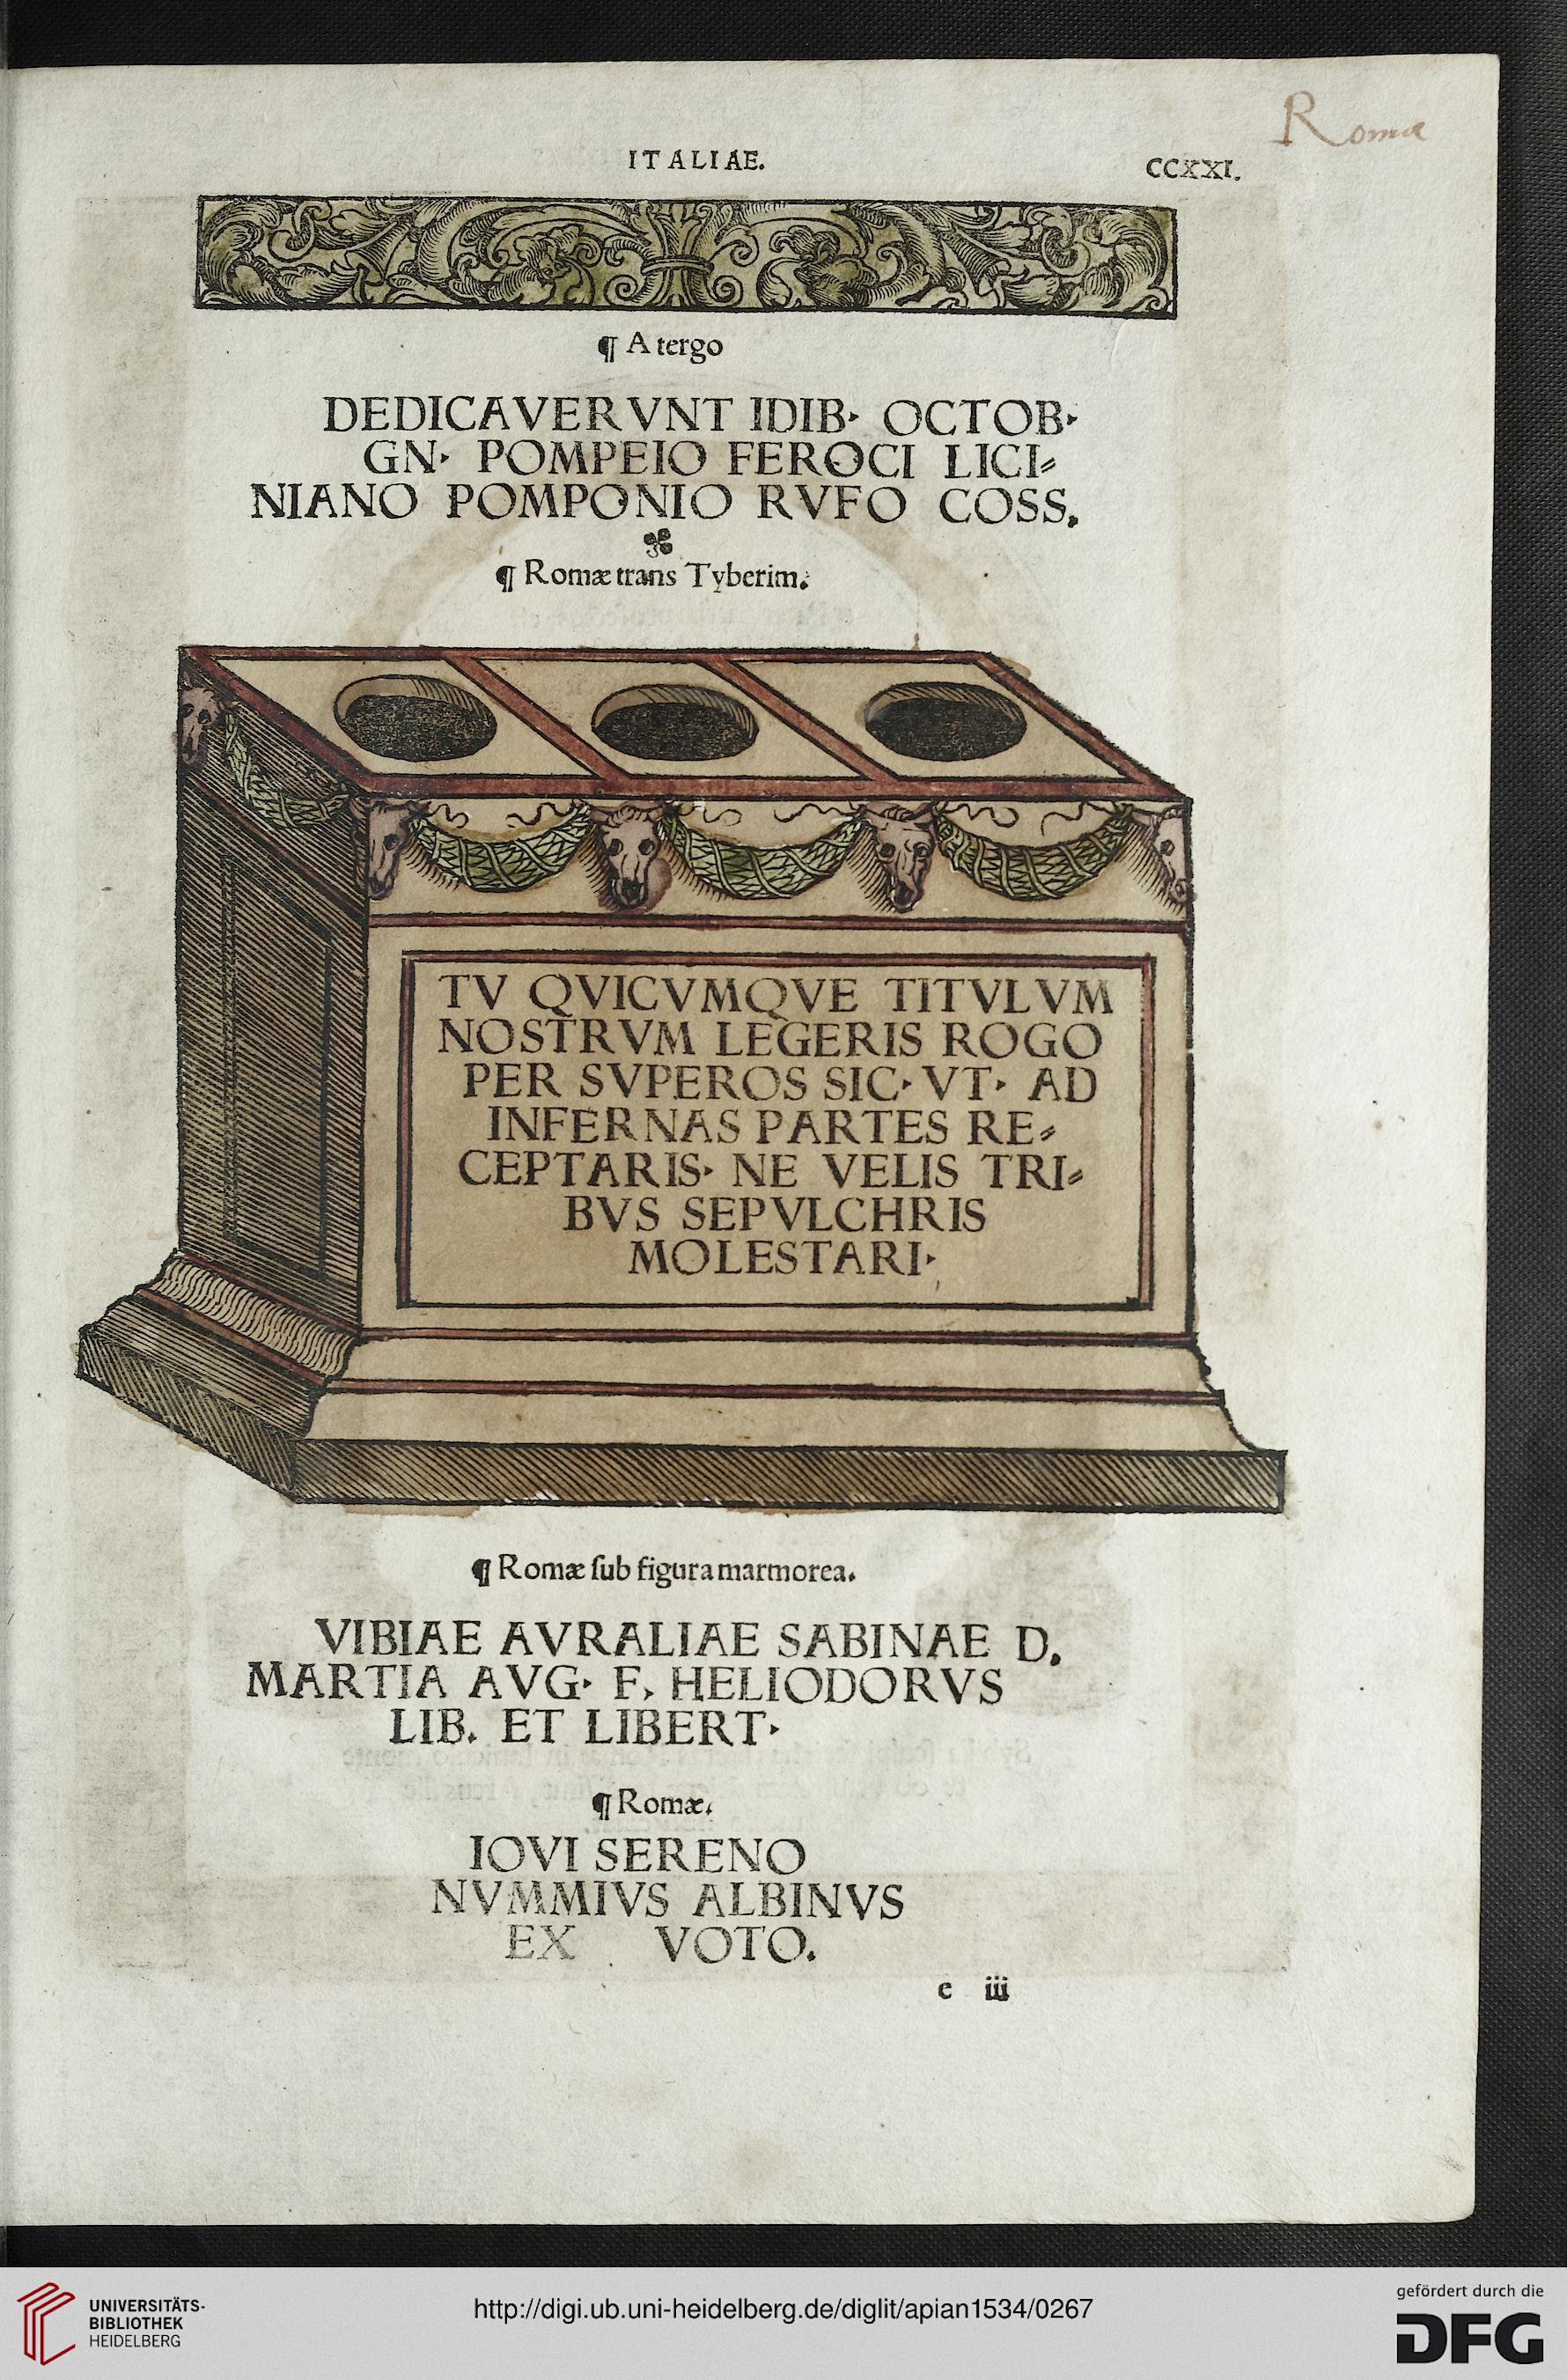 Roma
ITALIAE.
CCXXI.
¶ A tergo
DEDICAVERVNT IDIB· OCTOB·
GN· POMPEIO FEROCI LICI⸗
NIANO POMPONIO RVFO COSS.
¶ Romæ trans Tyberim.
TV QVICVMQVE TITVLVM
NOSTRVM LEGERIS ROGO
PER SVPEROS SIC· VT· AD
INFERNAS PARTES RE⸗
CEPTARIS· NE VELIS TRI⸗
BVS SEPVLCHRIS
MOLESTARI·
¶ Romæ ſub figura marmorea.
VIBIAE AVRALIAE SABINAE D.
MARTIA AVG· F. HELIODORVS
LIB. ET LIBERT·
¶ Romæ.
IOVI SERENO
NVMMIVS ALBINVS
EX VOTO.
e iii
UNIVERSITÄTS-
BIBLIOTHEK
HEIDELBERG
http://digi.ub.uni-heidelberg.de/diglit/apian1534/0267
gefördert durch die
DFG